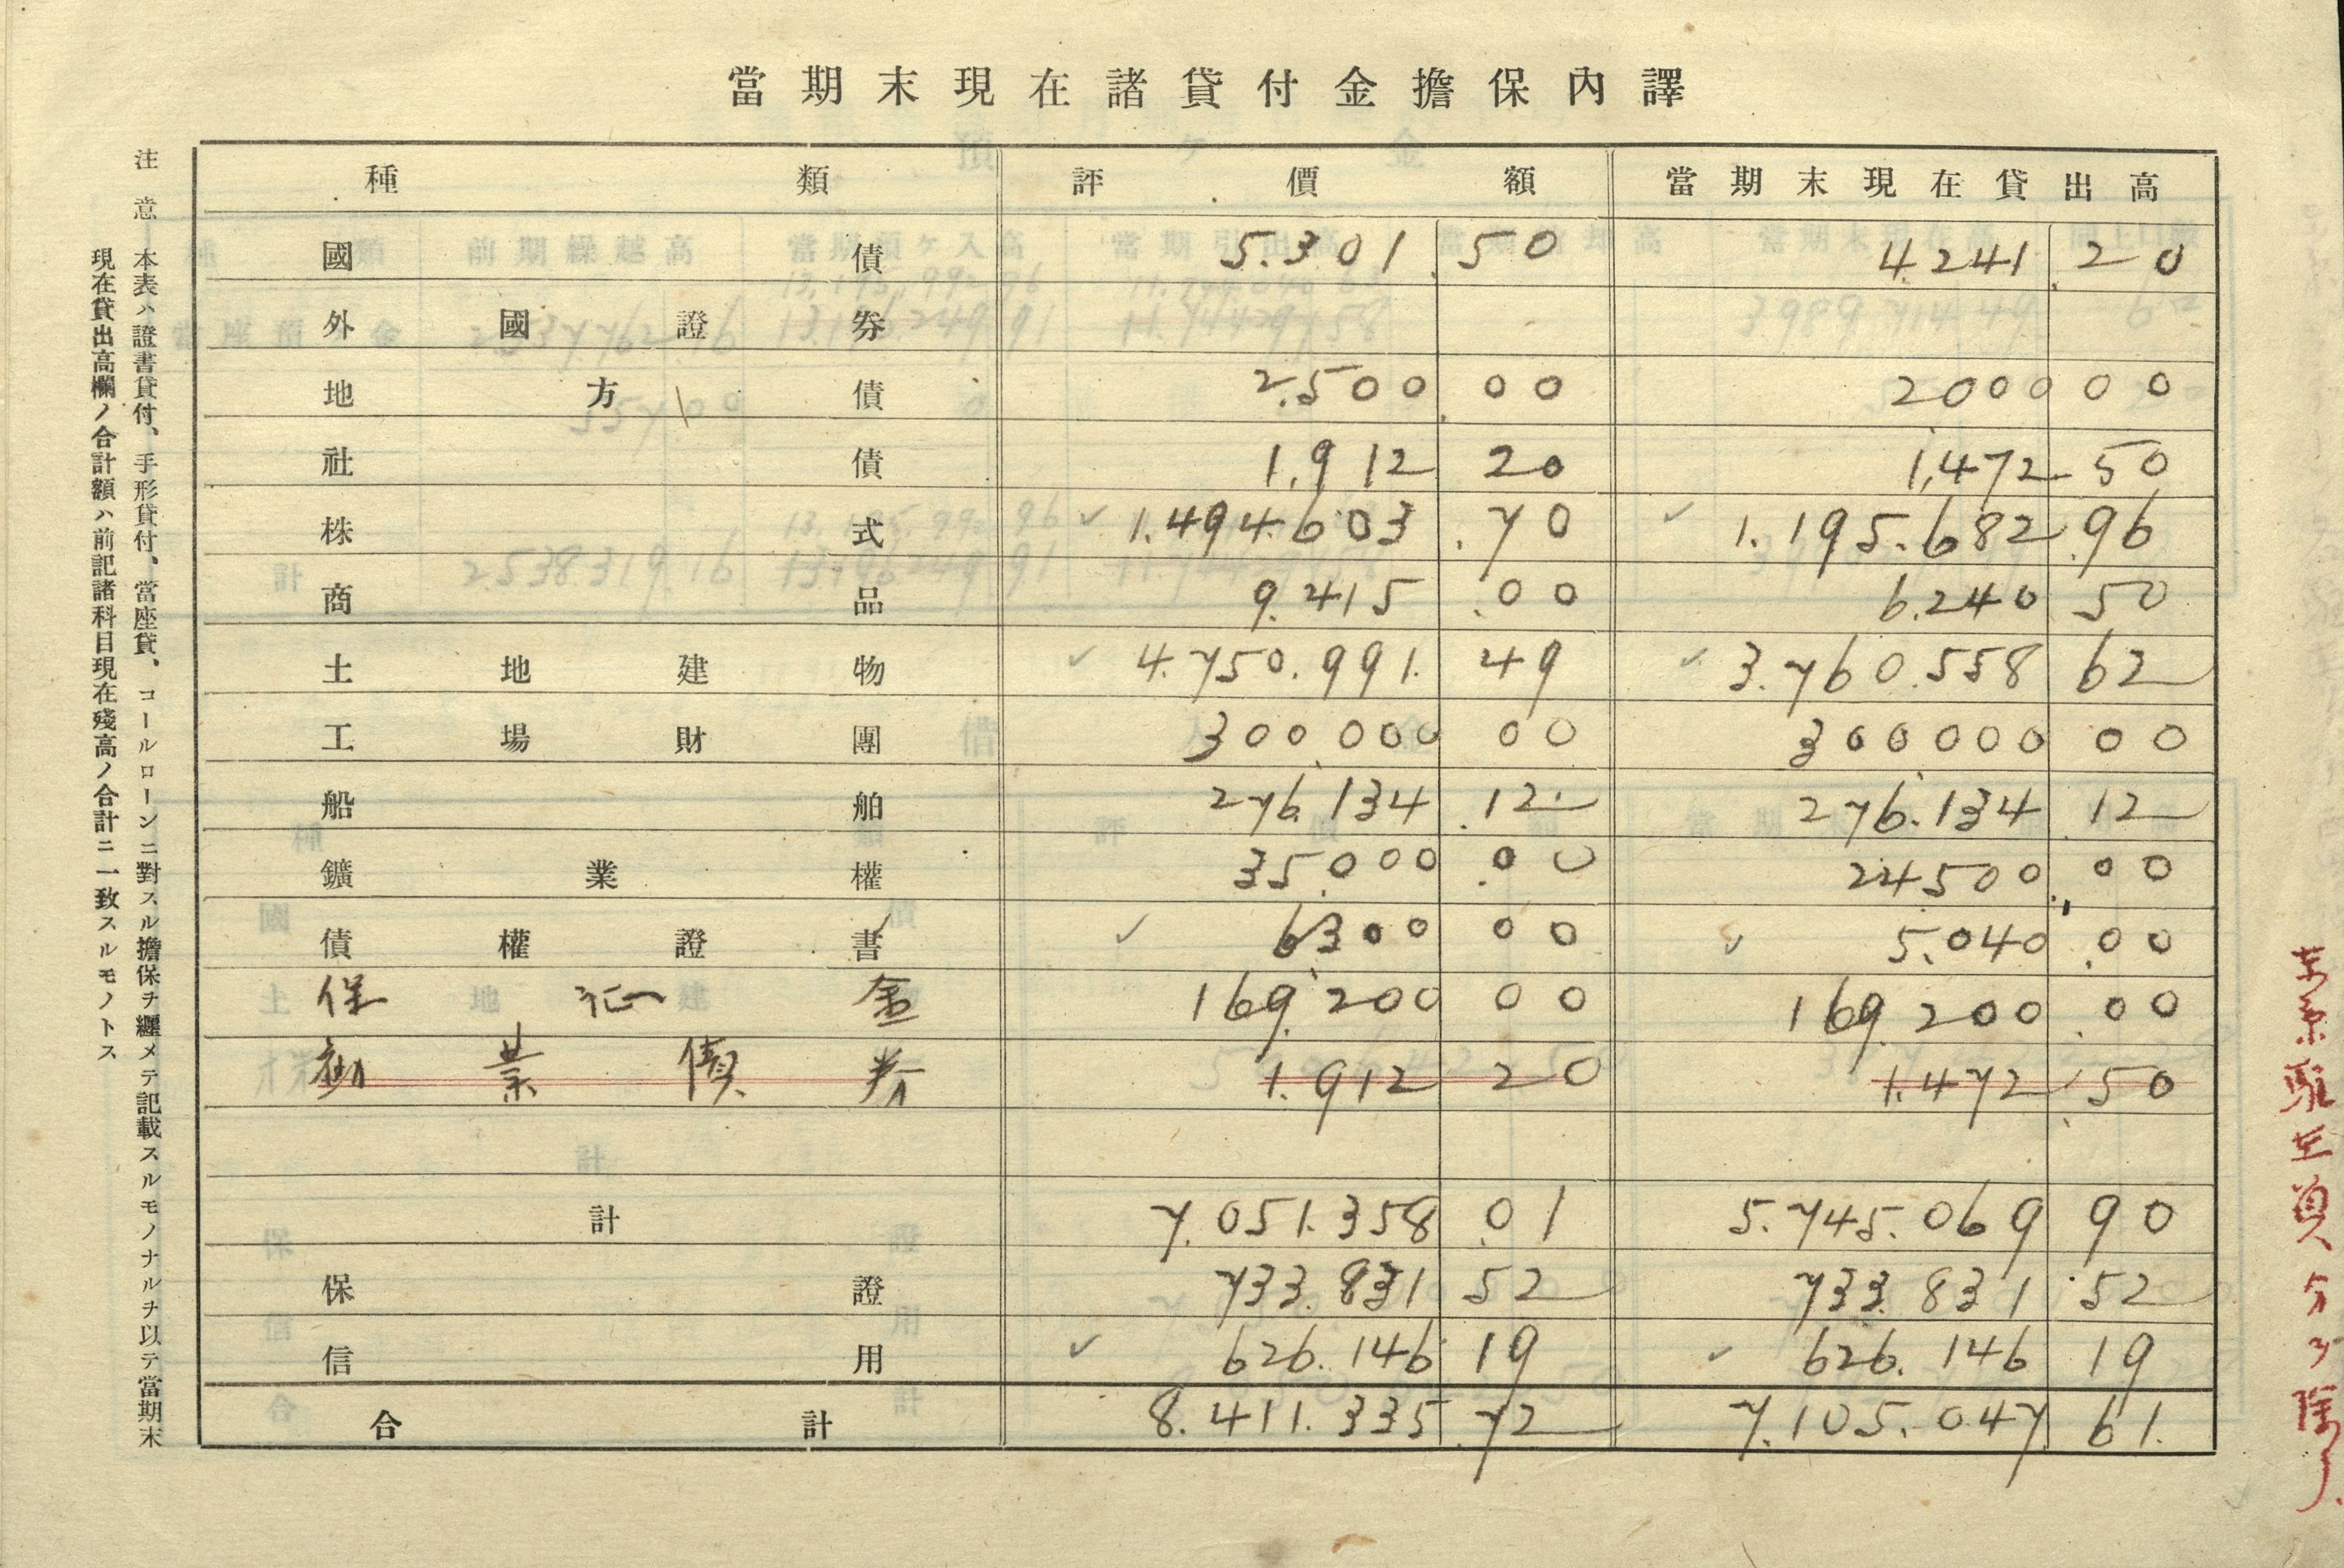 當期末現在諸貸付金擔保內譯
種類 評價額 當期末現在貸出高
國債 5.301.50 4.241.20
外國證券
地方債 2.500.00 2000 00
社債 1.912 20 1.472 50
株式 1.494.603.70 1.195.682.96
商品 9.415.00 6.240 50
土地建物 4.750.991.49 3.760.558 62
工場財團 300.000 00 300.000 00
船舶 276.134.12 276.134 12
鑛業權 35.000.00 24500.00
債權證書 6300 00 5.040.00
保証金 169.200 00 169.200.00
勧業債券 1.912 20 1.472 50
計 7.051.358.01 5.745.069 90
保證 733.831 52 733.831.52
信用 626.146 19 626.146 19
合計 8.411.335.72 7.105.047 61.
注意 本表ハ證書貸付、手形貸付、當座貸、コールローンニ對スル擔保ヲ纒メテ記載スルモノナルヲ以テ當期末
現在貸出高欄ノ合計額ハ前記諸科目現在殘高ノ合計ニ一致スルモノトス